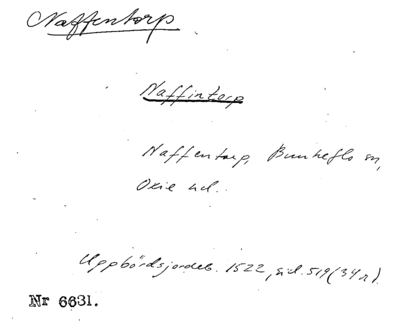 Naffentorp
Naffintorp
Naffentorp, Bunkeflo sn,
Oxie hd.
Uppbördsjordeb. 1522, sid. 519 (34 r).
Nr 6631.